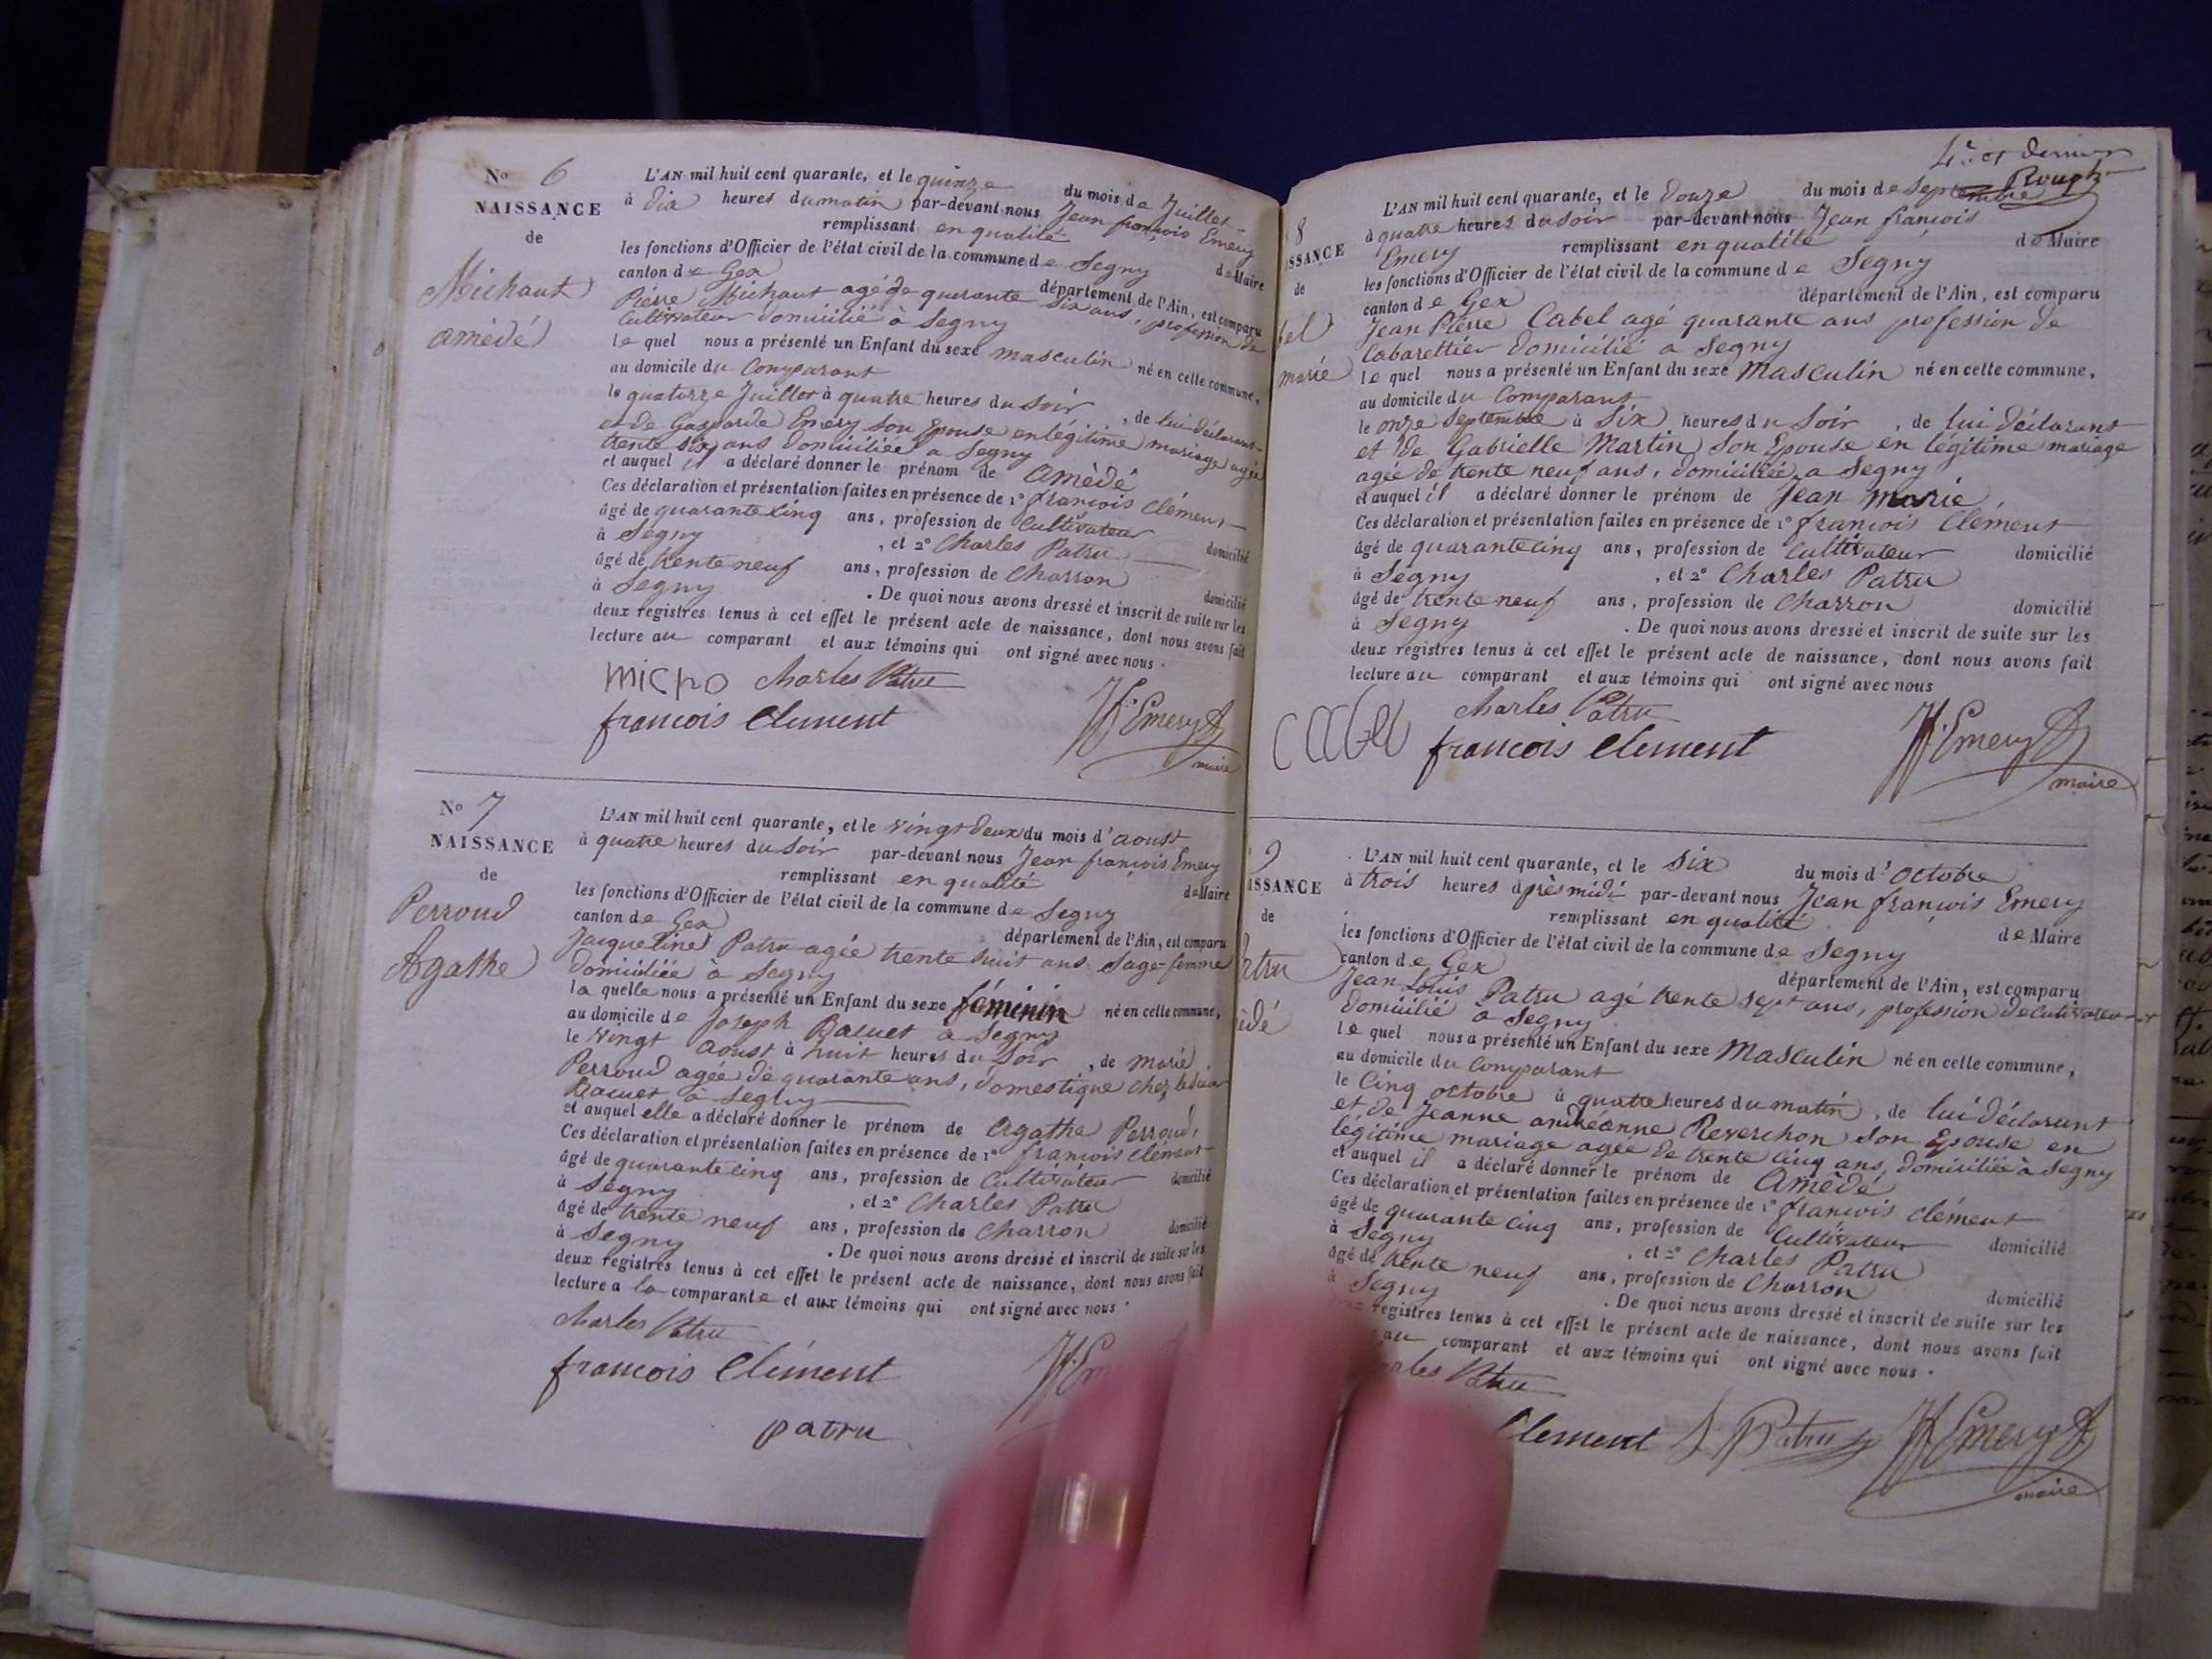 No 6
NAISSANCE
de
Michaut
amèdé
L'AN mil huit cent quarante, et le quinze du mois de Juillet
à dix heures du matin par-devant nous Jean françois Emery
remplissant en qualité de Maire
les fonctions d'Officier de l'état civil de la commune de Segny
canton de Gex département de l'Ain, est comparu
Pierre Michaut agé de quarante six ans, profession de
Cultivateur domicilié à Segny
le quel nous a présenté un Enfant du sexe masculin né en celle commune,
au domicile du Comparant
le quatorze Juillet à quatre heures du Soir, de lui déclarant
et de Gasparde Emery son Epouse en légitime mariage agée
trente six ans domiciliée a Segny
et auquel il a déclaré donner le prénom de Amèdé
Ces déclaration et présentation faites en présence de 1º françois Clément
âgé de quarante cinq ans, profession de Cultivateur domicilié
à Segny, et 2º Charles Patru
âgé de trente neuf ans, profession de Charron domicilié
à Segny. De quoi nous avons dressé et inscrit de suite sur les
deux registres tenus à cet effet le présent acte de naissance, dont nous avons fait
lecture au comparant et aux témoins qui ont signé avec nous.
micho Charles Patru
francois Clement JF Emery
maire
No 7
NAISSANCE
de
Perroud
Agathe
L'AN mil huit cent quarante, et le vingt deux du mois d'aoust
à quatre heures du Soir par-devant nous Jean françois Emery
remplissant en qualité de Maire
les fonctions d'Officier de l'état civil de la commune de Segny
canton de Gex département de l'Ain, est comparu
Jacqueline Patru agée trente huit ans Sage-femme
domiciliée à Segny
la quelle nous a présenté un Enfant du sexe féminin né en celle commune,
au domicile de Joseph Baluet a Segny
le vingt aoust à huit heures du Soir, de marie
Perroud agée de quarante ans, domestique chez le Sieur
a Segny
et auquel elle a déclaré donner le prénom de Agathe Perroud,
Ces déclaration et présentation faites en présence de 1º francois Clément
âgé de quarante cinq ans, profession de Cultivateur domicilié
à Segny, et 2º Charles Patru
âgé de trente neuf ans, profession de Charron domicilié
à Segny. De quoi nous avons dressé et inscrit de suite sur les
deux registres tenus à cet effet le présent acte de naissance, dont nous avons fait
lecture a la comparante et aux témoins qui ont signé avec nous.
Charles Patru
francois Clément JF Em
patru
4e et dernier
8
SSANCE
de
bel
marie
L'AN mil huit cent quarante, et le Douze du mois de Septembre
à quatre heures du soir par-devant nous Jean françois
Emery remplissant en qualité de Maire
les fonctions d'Officier de l'état civil de la commune de Segny
canton de Gex département de l'Ain, est comparu
Jean Pierre Cabel agé quarante ans profession de
Cabarettier domicilié a Segny
le quel nous a présenté un Enfant du sexe Masculin né en celle commune,
au domicile du Comparant
le onze Septembre à Six heures du Soir, de lui déclarant
et de Gabrielle Martin Son Epouse en légitime mariage
agée de trente neuf ans, domiciliée a Segny
et auquel il a déclaré donner le prénom de Jean Marie,
Ces déclaration et présentation faites en présence de 1º francois Clément
âgé de quarante cinq ans, profession de Cultivateur domicilié
à Segny, et 2º Charles Patru
âgé de trente neuf ans, profession de Charron domicilié
à Segny. De quoi nous avons dressé et inscrit de suite sur les
deux registres tenus à cet effet le présent acte de naissance, dont nous avons fait
lecture au comparant et aux témoins qui ont signé avec nous
Charles Patru
cabel francois Clement JF Emery
maire
9
ISSANCE
de
atru
édé
L'AN mil huit cent quarante, et le Six du mois d'Octobre
à trois heures après midi par-devant nous Jean françois Emery
remplissant en qualité de Maire
les fonctions d'Officier de l'état civil de la commune de Segny
canton de Gex département de l'Ain, est comparu
Jean Louis Patru agé trente sept ans, profession de Cultivateur
domicilié a Segny
le quel nous a présenté un Enfant du sexe Masculin né en celle commune,
au domicile du Comparant
le Cinq octobre à quatre heures du matin, de lui déclarant
et de Jeanne andréanne Reverchon Son Epouse en
légitime mariage agée de trente cinq ans, domiciliée à Segny
et auquel il a déclaré donner le prénom de Amèdé
Ces déclaration et présentation faites en présence de 1º francois Clément
âgé de quarante cinq ans, profession de Cultivateur domicilié
à Segny, et 2º Charles Patru
âgé de trente neuf ans, profession de Charron domicilié
à Segny. De quoi nous avons dressé et inscrit de suite sur les
registres tenus à cet effet le présent acte de naissance, dont nous avons fait
au comparant et aux témoins qui ont signé avec nous.
arles Patru
Clement Patru JF Emery
maire